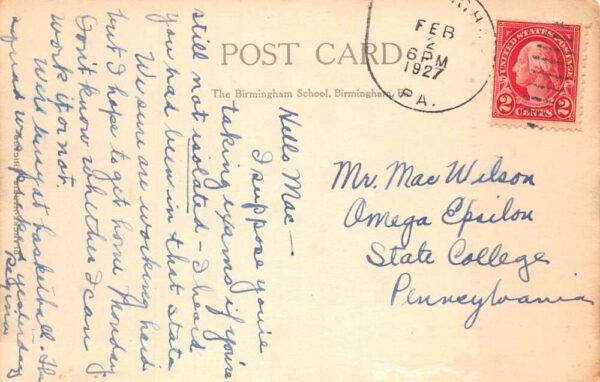 POST CARD
The Birmingham School, Birmingham,
FEB
2
6PM
1927
PA.
UNITED STATES POSTAGE
2 CENTS 2
Hello Mac—
I suppose you're
taking exams if you're
still not isolated - I heard
you had been in that state
We sure are working hard
but I hope to get home Monday
Don't know whether I can
work it or not.
We'll have just basketball the
squad was picked yesterday
Regina
Mr. Mac Wilson
Omega Epsilon
State College
Pennsylvania